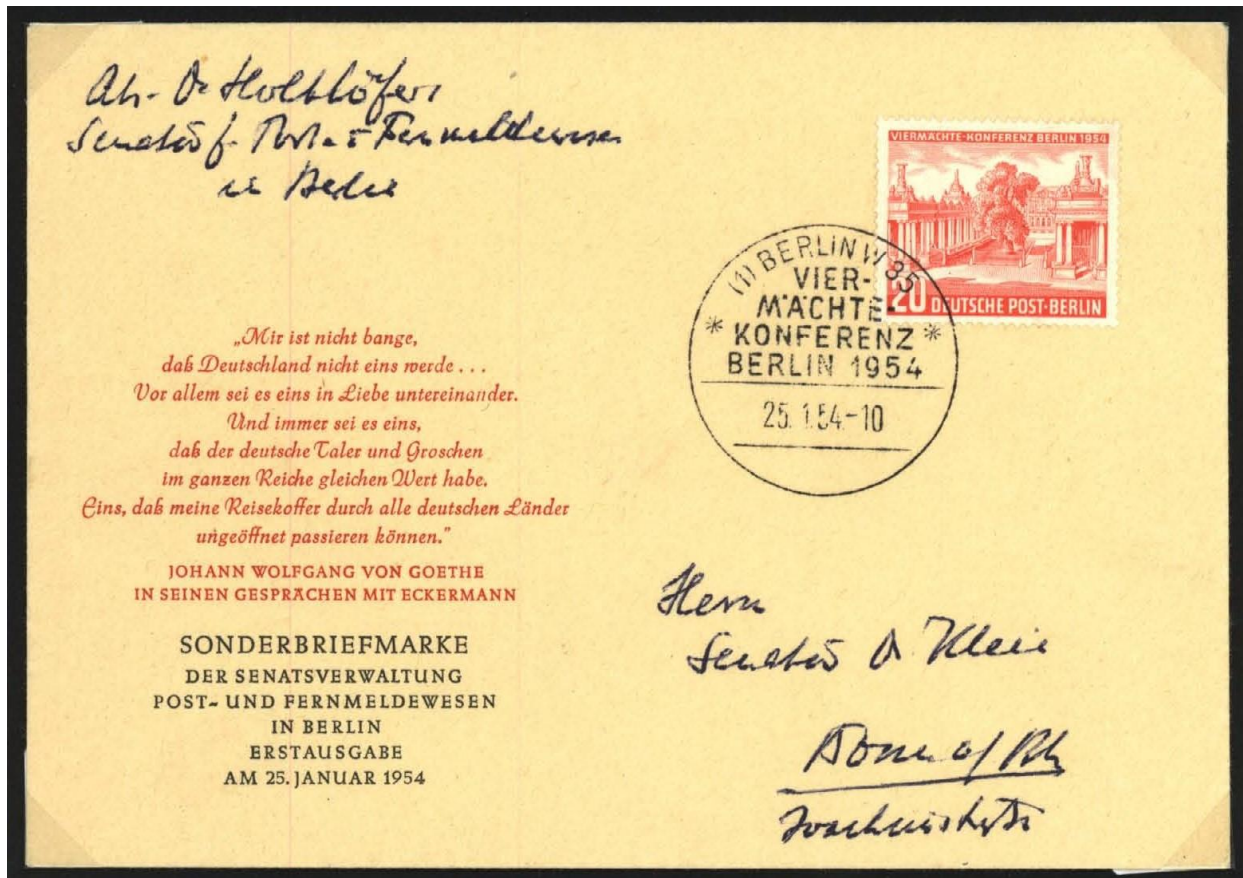 Abs. Dr Holthöfer
Senator f. Post- u Fernmeldewesen
in Berlin
VIERMÄCHTE-KONFERENZ BERLIN 1954
20 DEUTSCHE POST·BERLIN
(1) BERLIN W 35
VIER-
MÄCHTE-
KONFERENZ
BERLIN 1954
25.1.54.-10
„Mir ist nicht bange,
daß Deutschland nicht eins werde . . .
Vor allem sei es eins in Liebe untereinander.
Und immer sei es eins,
daß der deutsche Taler und Groschen
im ganzen Reiche gleichen Wert habe.
Eins, daß meine Reisekoffer durch alle deutschen Länder
ungeöffnet passieren können.”
JOHANN WOLFGANG VON GOETHE
IN SEINEN GESPRÄCHEN MIT ECKERMANN
SONDERBRIEFMARKE
DER SENATSVERWALTUNG
POST- UND FERNMELDEWESEN
IN BERLIN
ERSTAUSGABE
AM 25. JANUAR 1954
Herrn
Senator Dr Klein
Bonn a/Rh